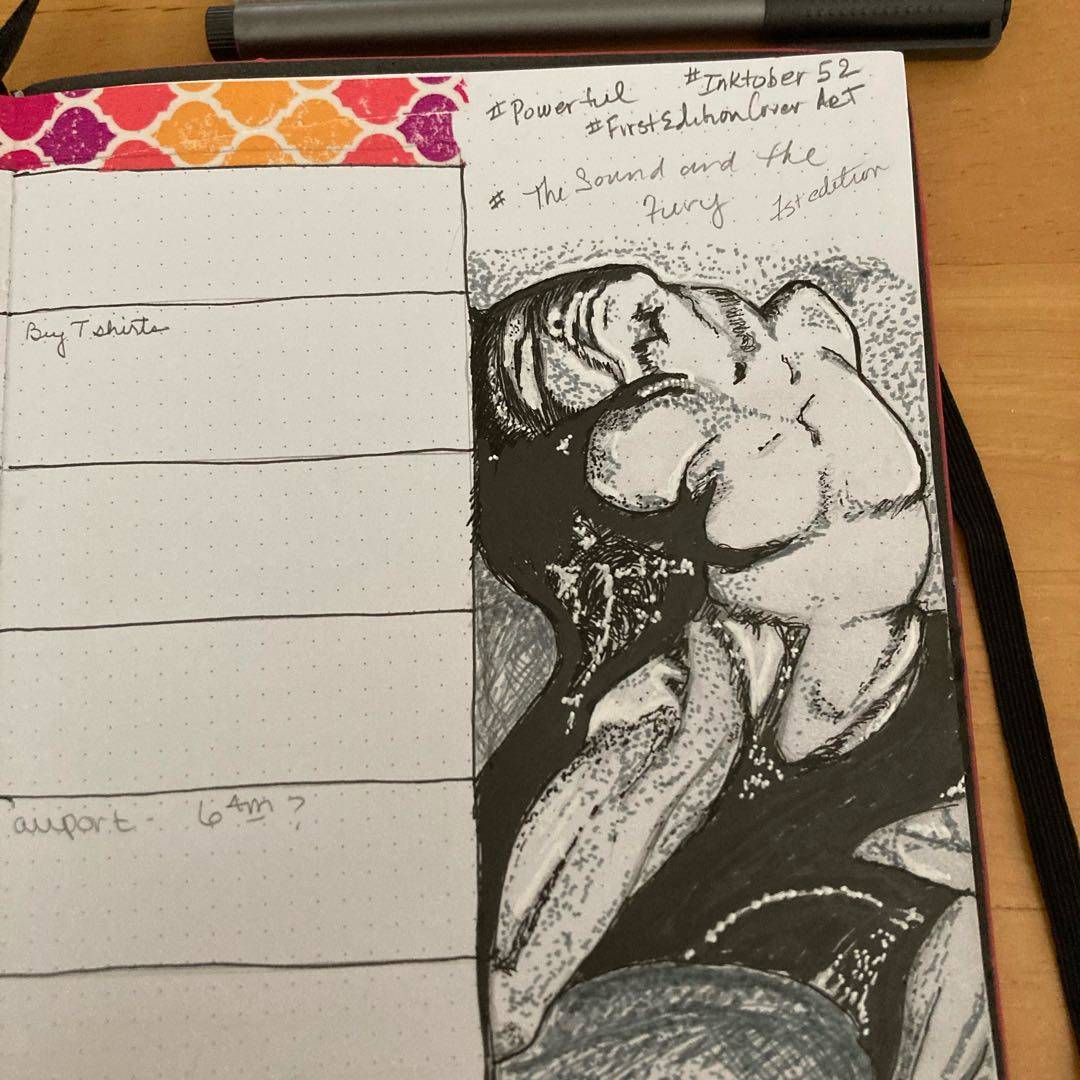 #Powerful #Inktober 52
#FirstEditionCover Art
# The Sound and the
Fury 1st edition
Buy T shirts
airport 6 AM ?